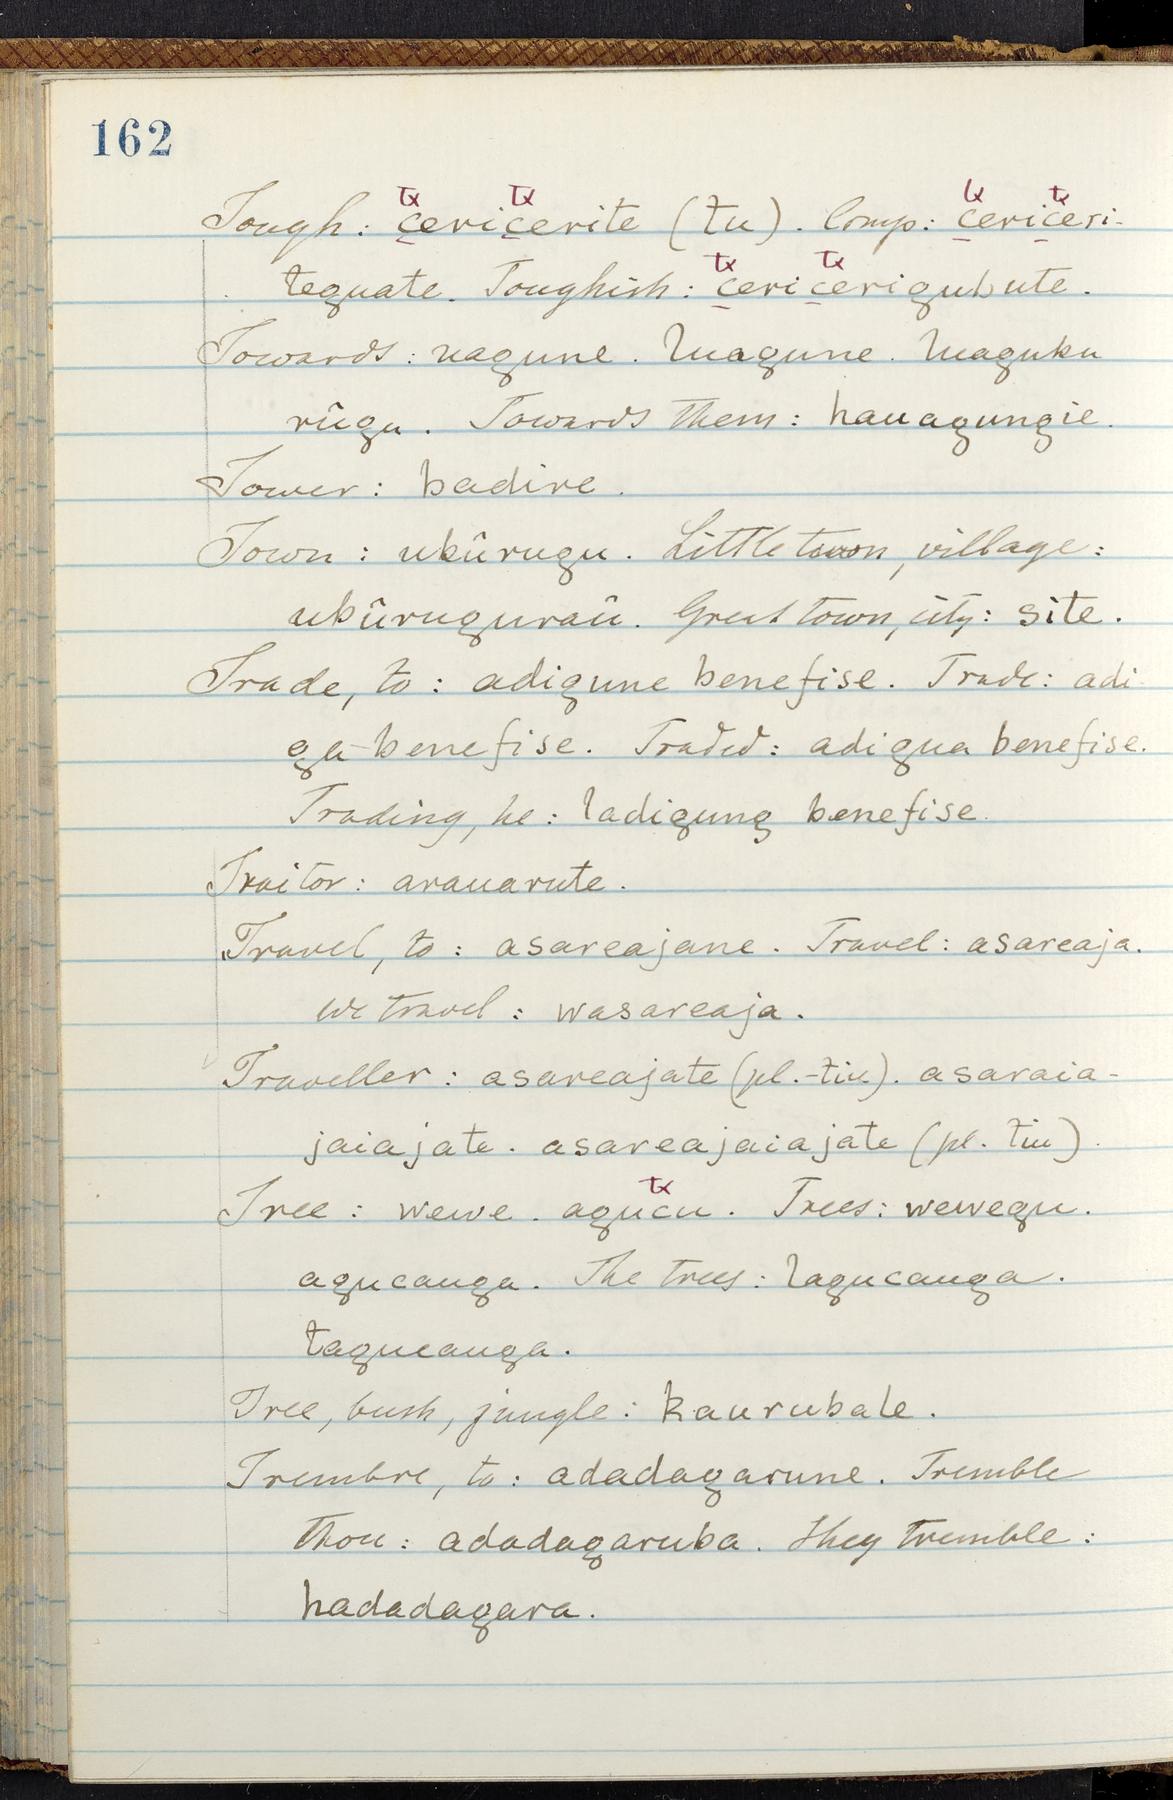 162
tx tx tx tx
Tough: cericerite (tu). Comp: cericeri-
tx tx
teguate. Toughish: cericerigubute.
Towards: uagune. luagune. luaguku
rûgu. Towards them: hauagungie.
Tower: badire.
Town: ubûrugu. Little town, village:
ubûruguraü. Great town, city: site.
Trade, to: adigune benefise. Trade: adi-
ga-benefise. Traded: adigua benefise.
Trading, he: ladigung benefise.
Traitor: arauarute.
Travel, to: asareajane. Travel: asareaja.
We travel: wasareaja.
Traveller: asareajate (pl.-tiu). asaraia-
jaiajate. asareajaiajate (pl. tiu).
tx
Tree: wewe. agucu. Trees: wewegu.
agucauga. The trees: lagucauga.
tagucauga.
Tree, bush, jungle: kaurubale.
Trembre, to: adadagarune. Tremble
thou: adadagaruba. They tremble:
hadadagara.